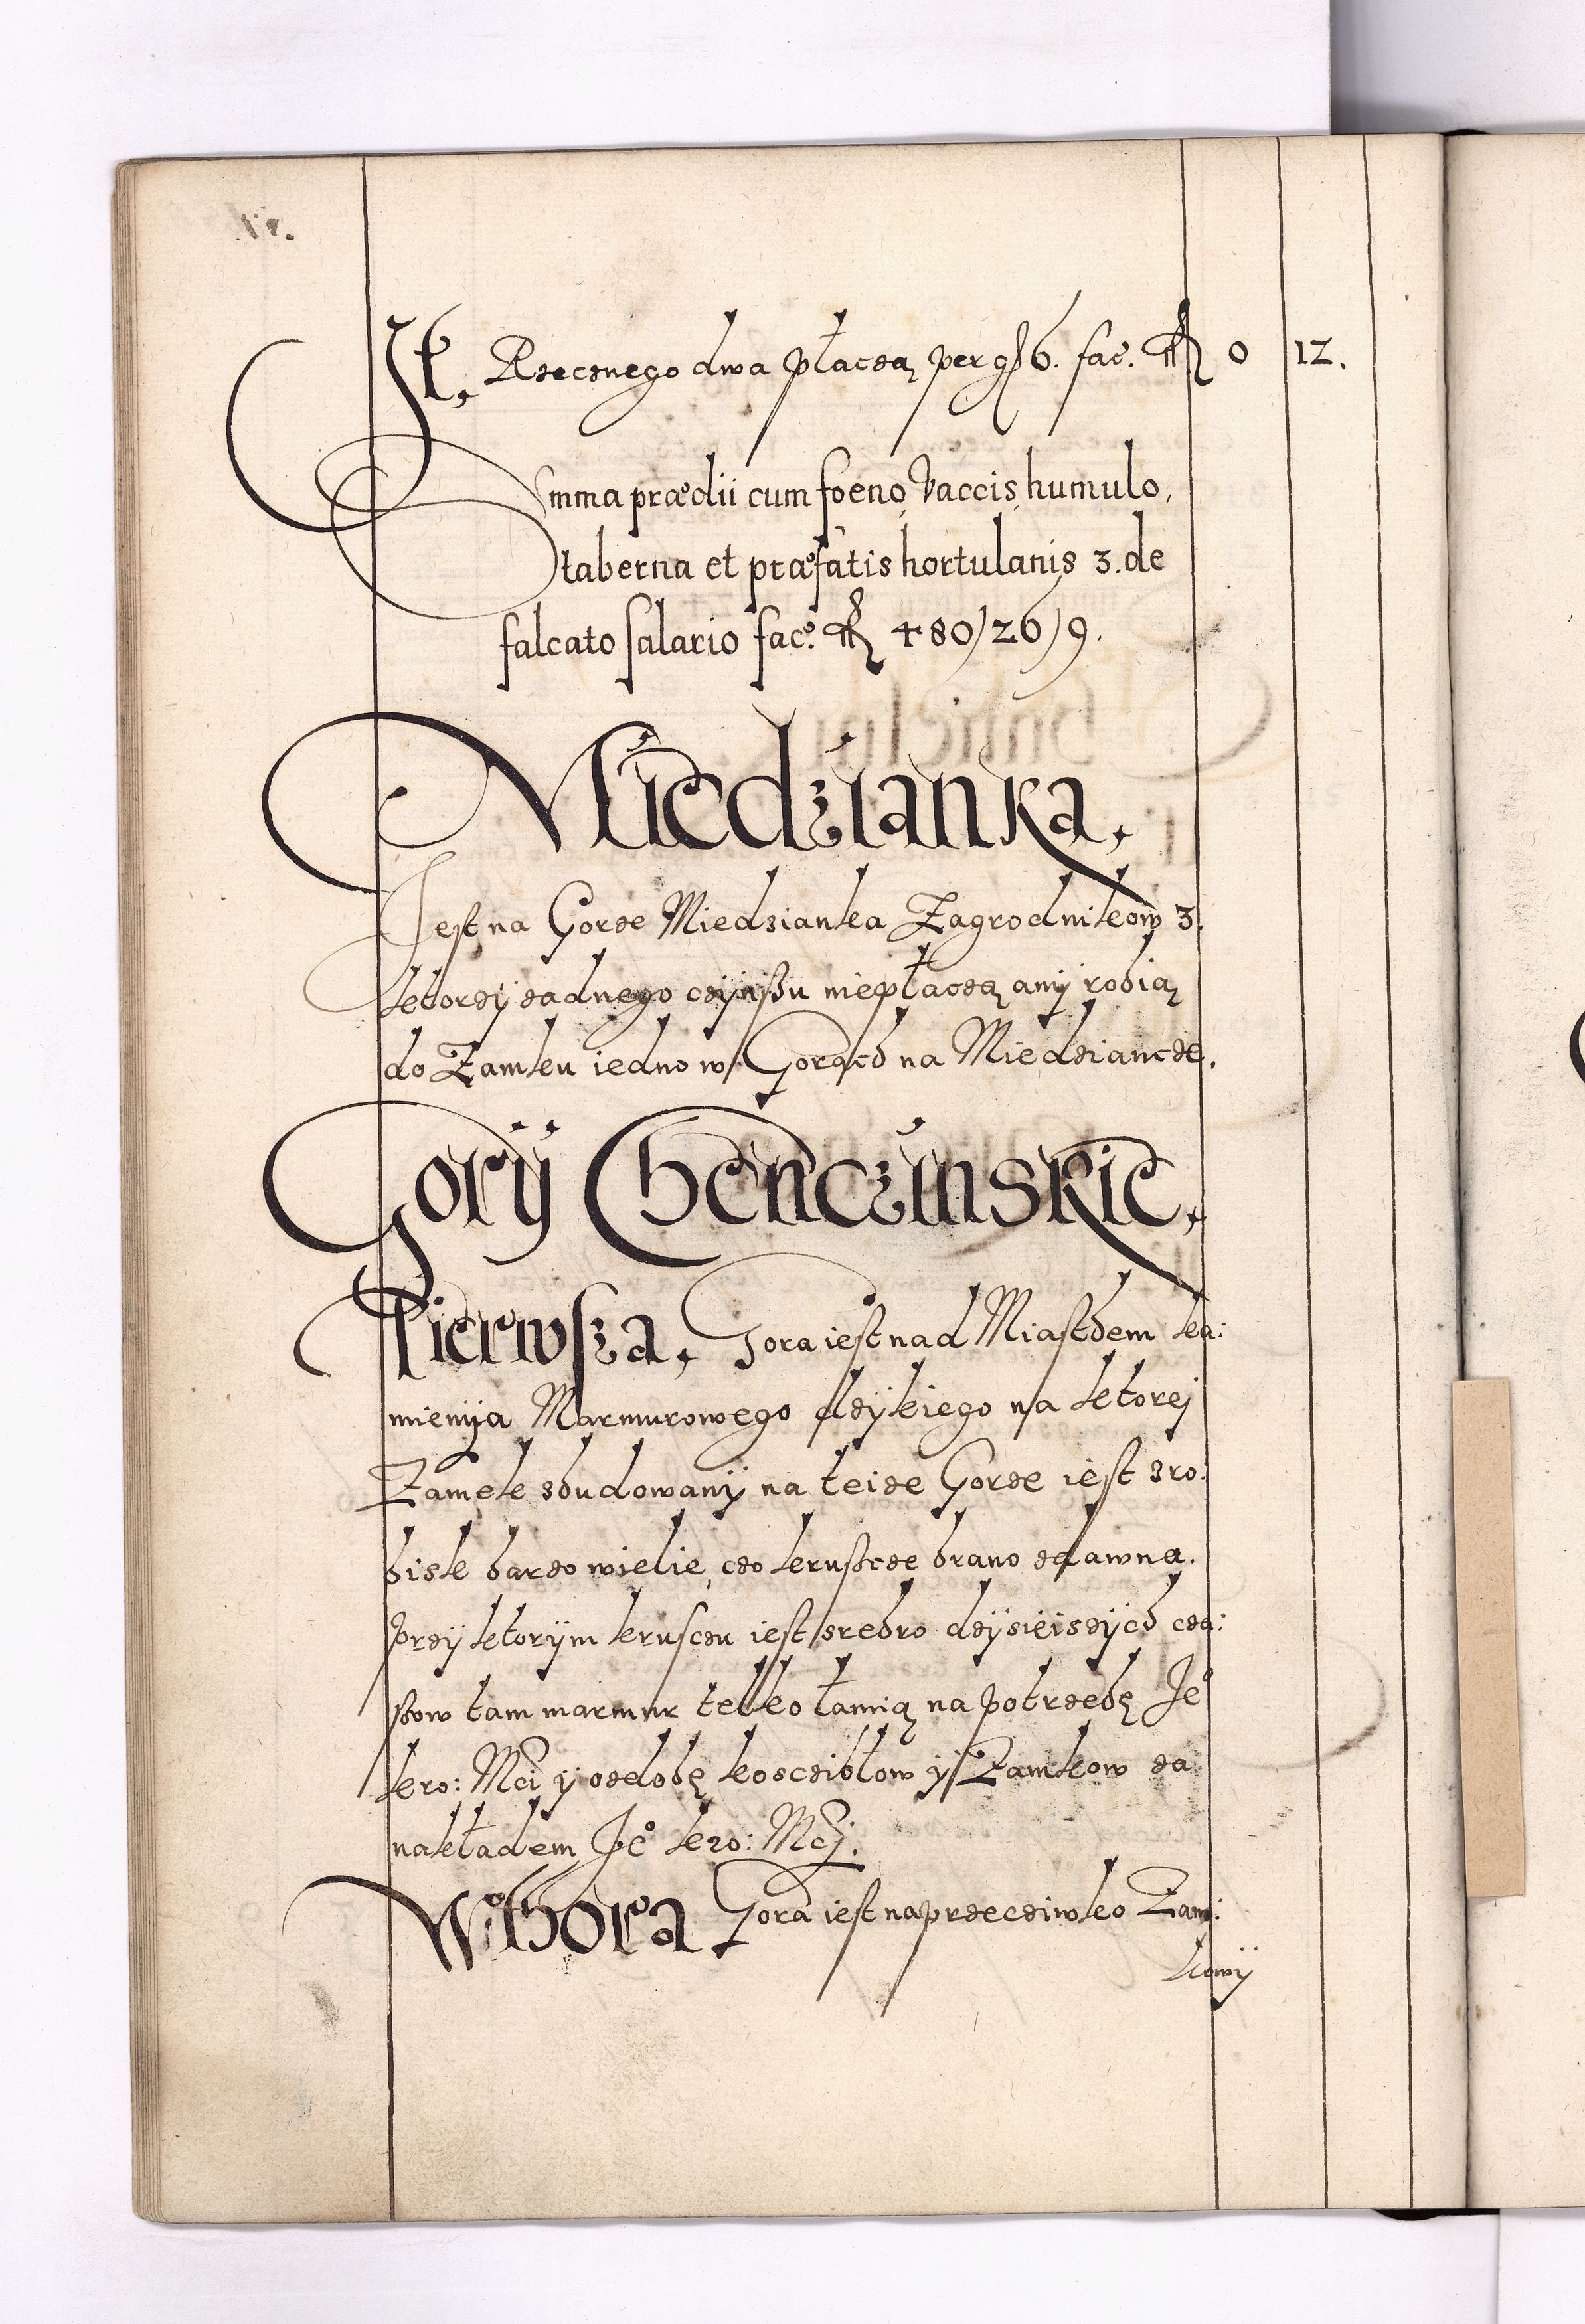 It. Rzecznego dwa płaczą per gß 6. fac. fl 0 12.
Summa prædii cum foeno, vaccis, humulo,
taberna et præfatis hortulanis 3. de
falcato salario fac. fl 480/26/9.
Miedzianka,
Jest na Gorze Miedzianka Zagrodnikow 3.
ktorzÿ zadnego czÿnßu nie płaczą anÿ robią
do Zamku iedno w Gorach na Miedziancze.
Gorÿ Chenczinskie,
Pierwsza, Gora iest nad Miasthem ka:
mienya Marmurowego dzÿkiego na ktorej
Zamek zbudowanÿ na teize Gorze iest zro:
bisk barzo wielie, czo krußcze brano zdawna.
Przÿ ktorÿm kruszcu iest srebro dzÿsieiszÿch cza:
ßow tam marmur telko łamią na potrzebę Je°
kro: Mci ÿ ozdobę koscziołow ÿ Zamkow za
nakładem Je° kro: Mcj.
Wthora Gora iest naprzecziwko Zam:
kowÿ